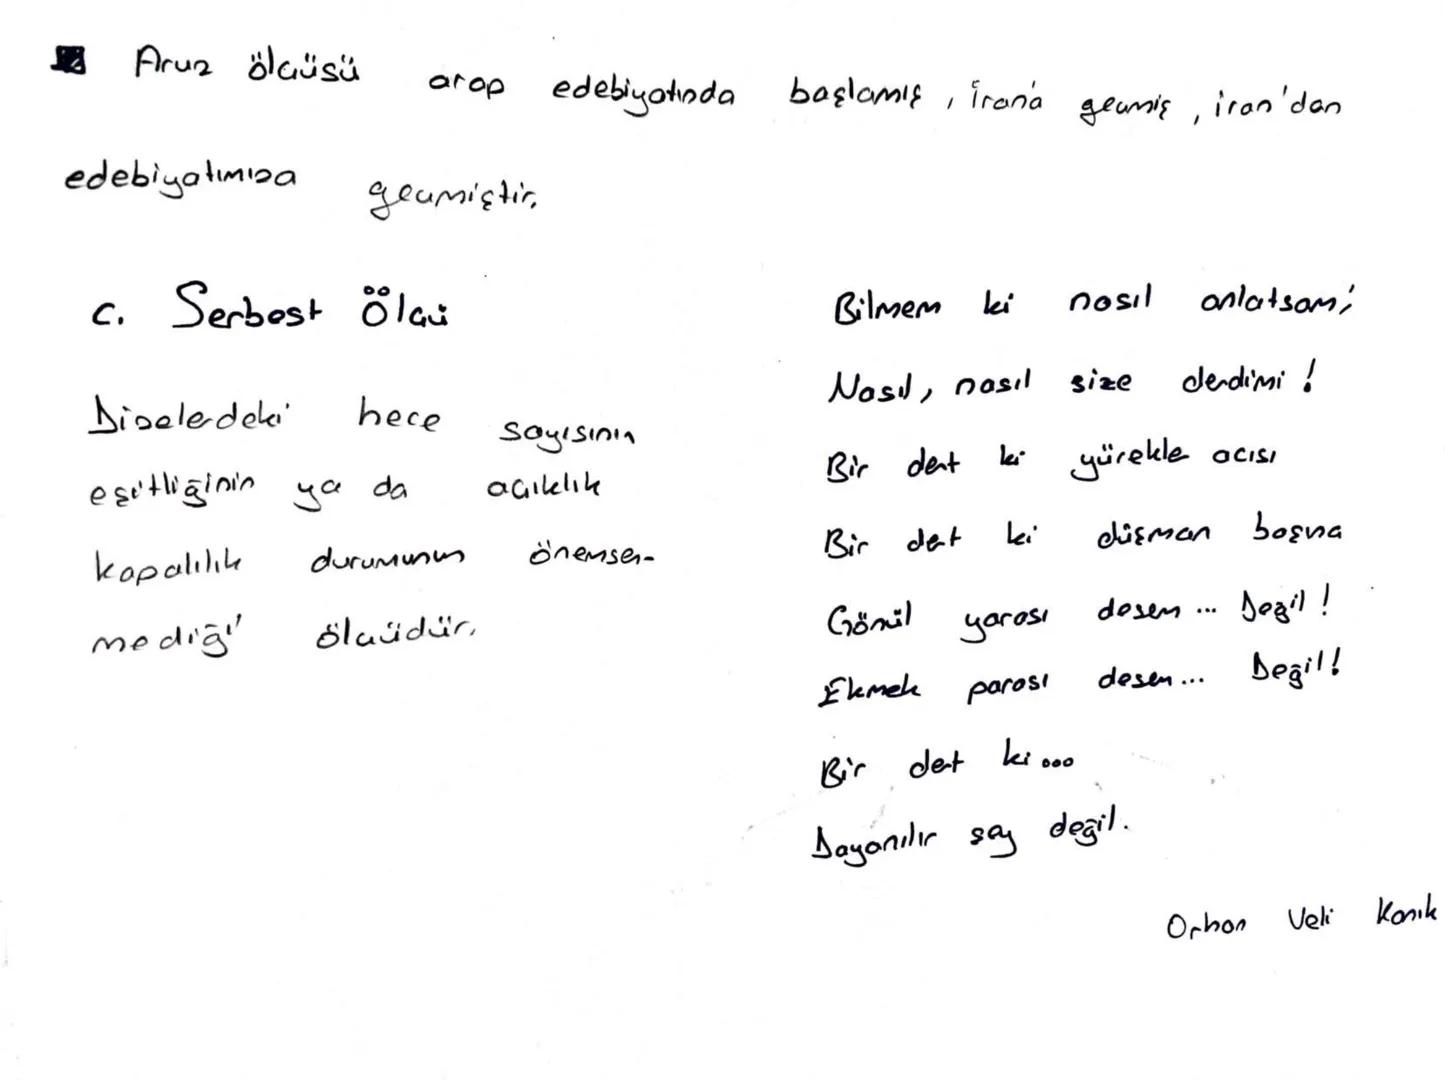 Aruz ölçüsü arap edebiyatında başlamış, İran'a geçmiş, iran'dan
edebiyatımıza geçmiştir.
c. Serbest Ölçü
Dizelerdeki hece sayısının
eşitliğinin ya da açıklık
kapalılık durumunun önemsen-
mediği ölçüdür.
Bilmem ki nasıl anlatsam;
Nasıl, nasıl size derdimi!
Bir dert ki yürekle acısı
Bir dert ki düşman başına
Gönül yarası desem... Değil!
Ekmek parası desem... Değil!
Bir dert ki...
Dayanılır şey değil.
Orhan Veli Kanık